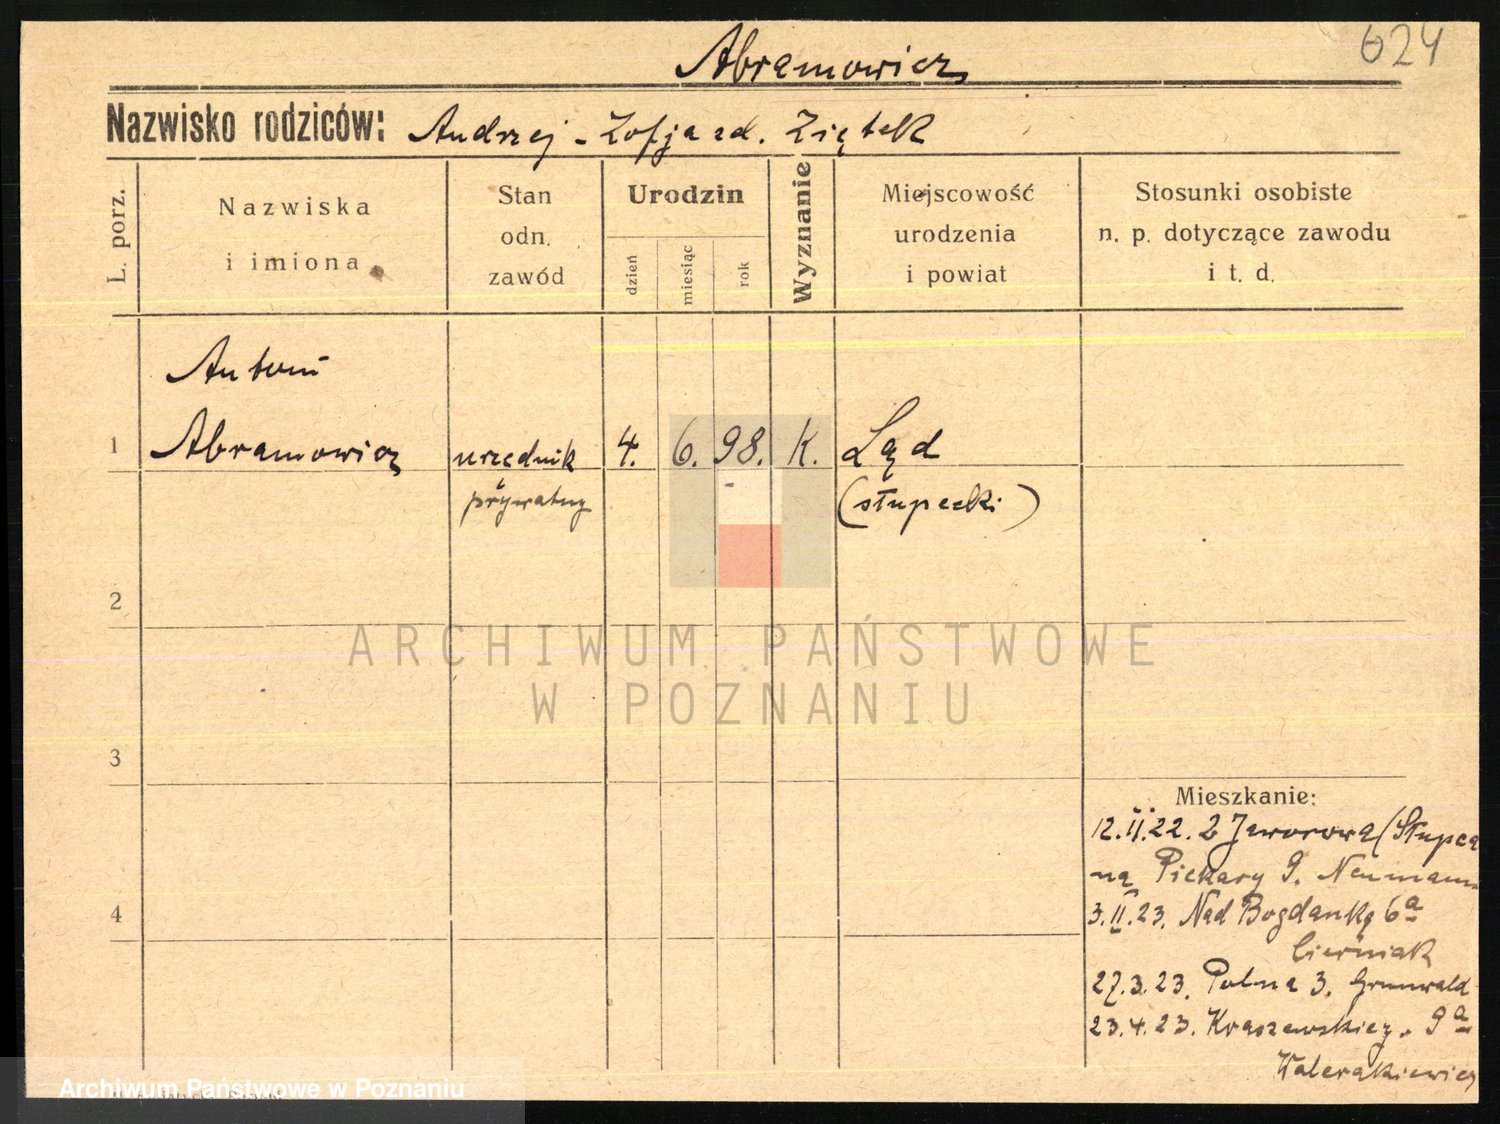 624
Abramowicz
Nazwisko rodziców: Andrzej - Zofja zd. Ziętek
L. porz.
Nazwiska
i imiona
Stan
odn.
zawód
Urodzin
dzień
miesiąc
rok
Wyznanie
Miejscowość
urodzenia
i powiat
Stosunki osobiste
n. p. dotyczące zawodu
i t. d.
Antoni
1 Abramowicz urzędnik 4. 6. 98. K. Ląd
prywatny (słupecki)
2
ARCHIWUM PAŃSTWOWE
W POZNANIU
3
Mieszkanie:
12.II.22. z Jaworowa (Słupca
na Piekary 9. Neumann
4
3.II.23. Nad Bogdanką 6a
Cierniak
27.3.23. Polna 3. Grunwald
23.4.23. Kraszewskieg. 9a
Archiwum Państwowe w Poznaniu